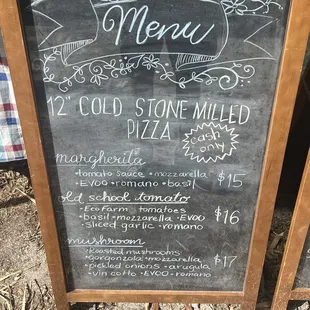 Menu
12" COLD STONE MILLED
PIZZA
cash
only
margherita
tomato sauce • mozzarella
• EVOO • romano • basil $15
old school tomato
• Ecofarm tomatoes
• basil • mozzarella • EVOO $16
• sliced garlic • romano
mushroom
• Roasted mushrooms
• gorgonzola • mozzarella $17
• pickled onions • arugula
• vin cotto • EVOO • romano